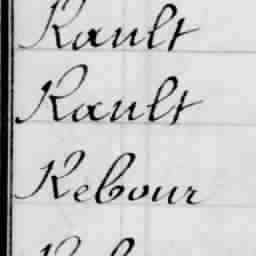 Rault
Rault
Rebour